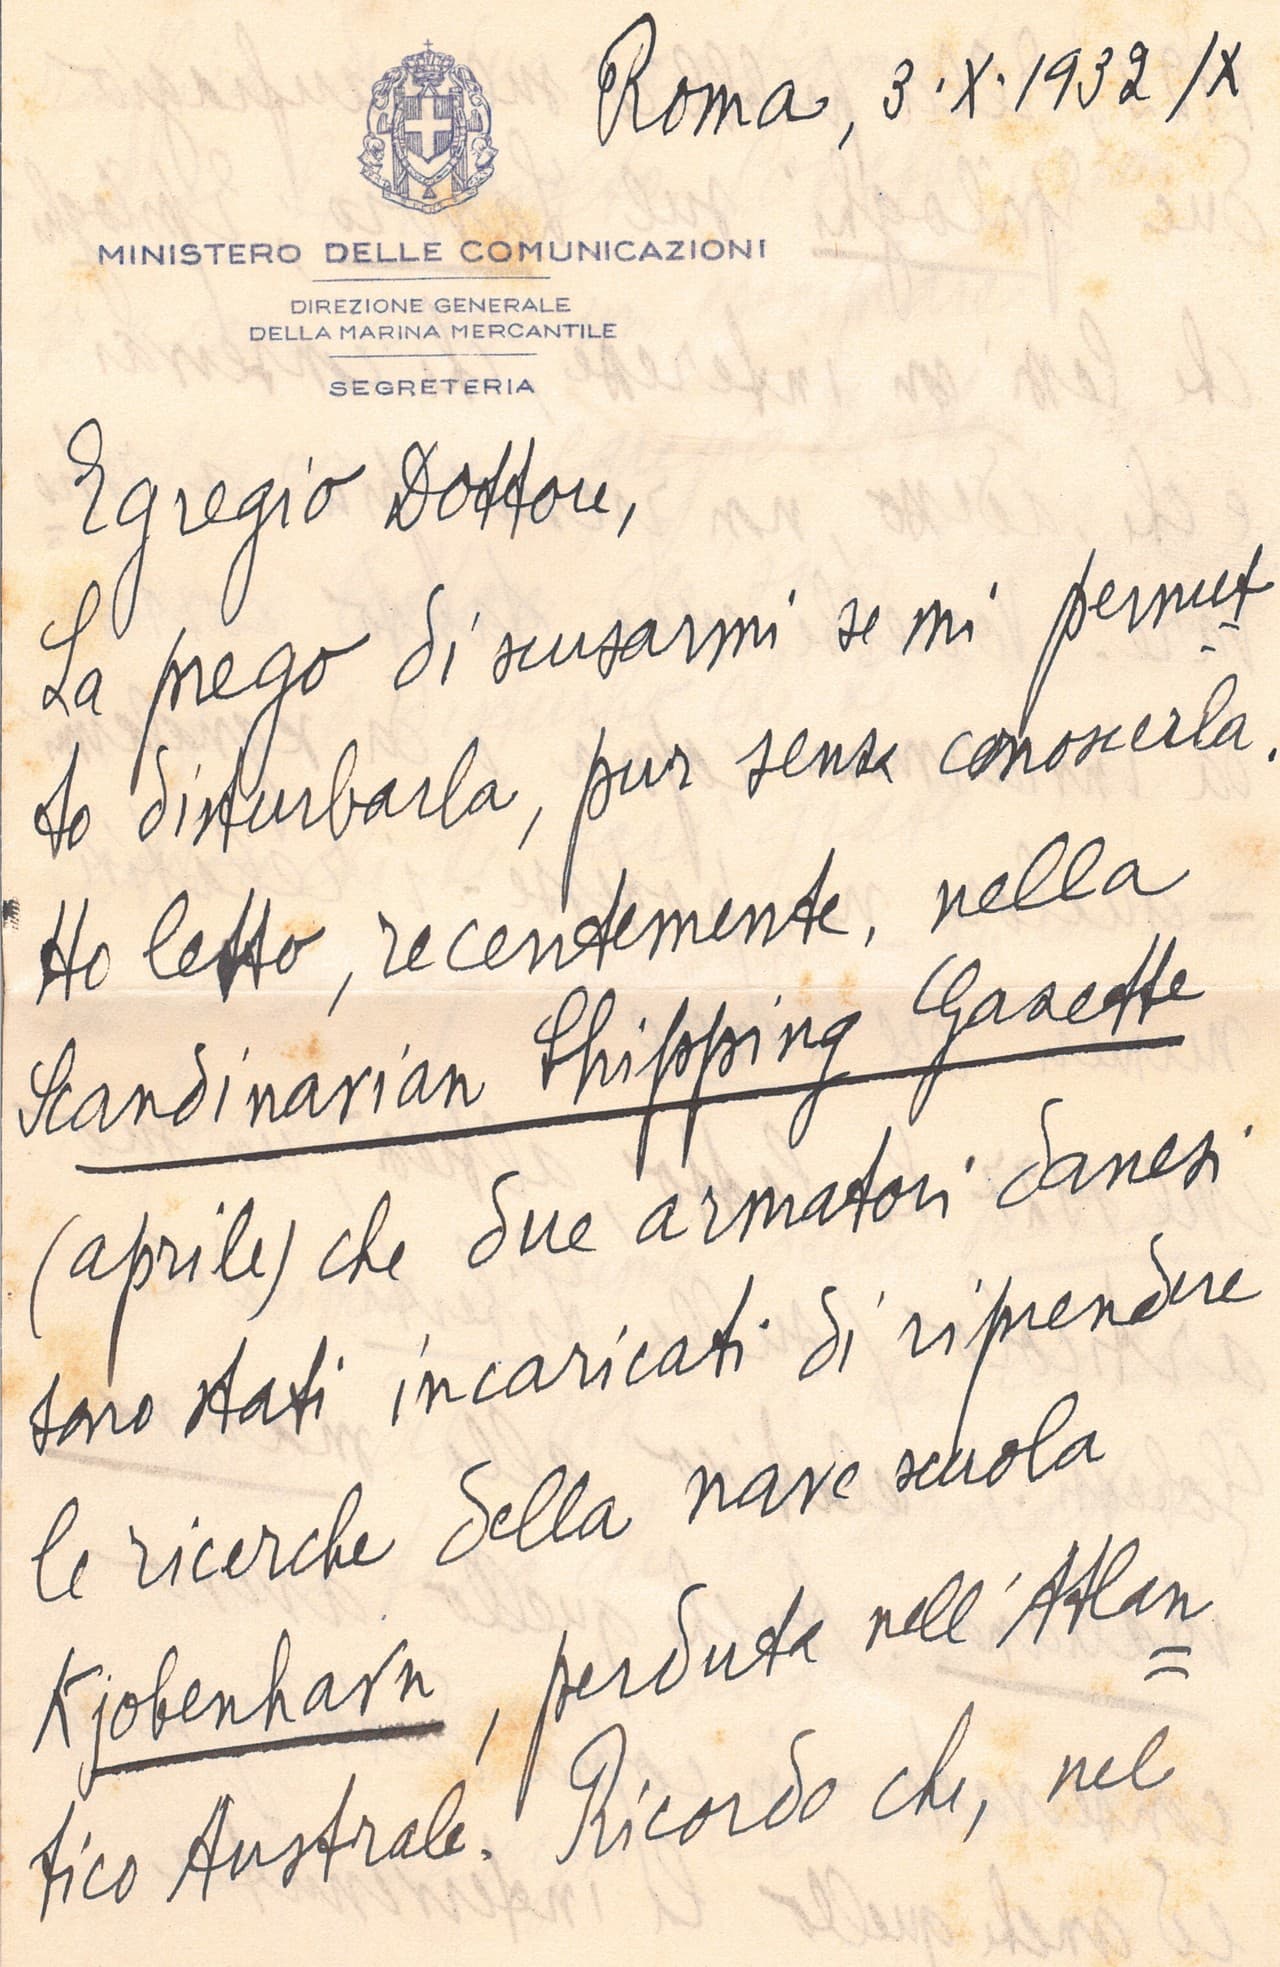 Roma, 3.X.1932/X
MINISTERO DELLE COMUNICAZIONI
DIREZIONE GENERALE
DELLA MARINA MERCANTILE
SEGRETERIA
Egregio Dottore,
La prego di scusarmi se mi permet=
to disturbarla, pur senza conoscerla.
Ho letto, recentemente, nella
Scandinavian Shipping Gazette
(aprile) che due armatori danesi
sono stati incaricati di riprendere
le ricerche della nave scuola
Kjobenhavn, perduta nell'Atlan=
tico Australe. Ricordo che, nel